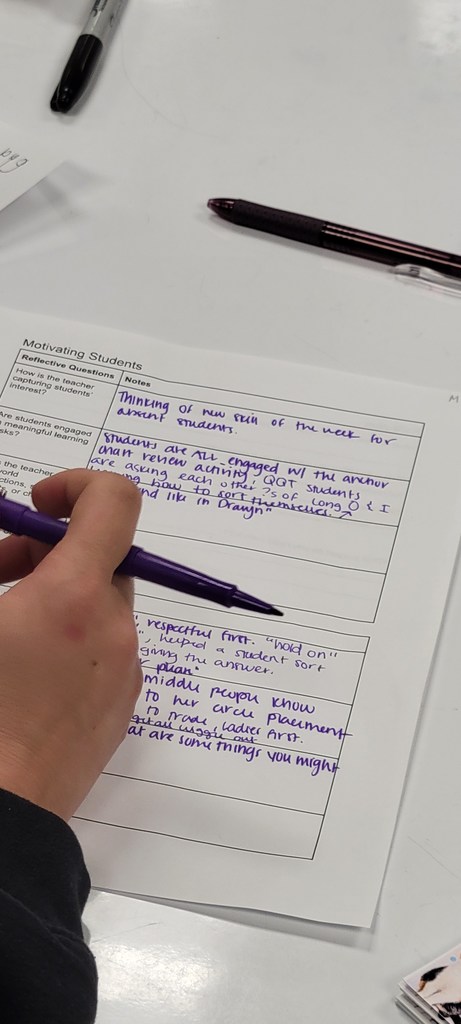 Motivating Students
Reflective Questions
Notes
How is the teacher
capturing students'
interest?
Thinking of new skill of the week for
absent students.
Are students engaged
meaningful learning
students are ALL engaged w/ the anchor
chart review activity, QGT students
are asking each other ?s of long O & I
how to sort themselves.
and like in Drawyn"
the teacher
respectful first. "hold on"
", helped a student sort
giving the answer.
plan"
middle person know
to her circle placement
to trade, ladies first.
wiggle out
at are some things you might
M